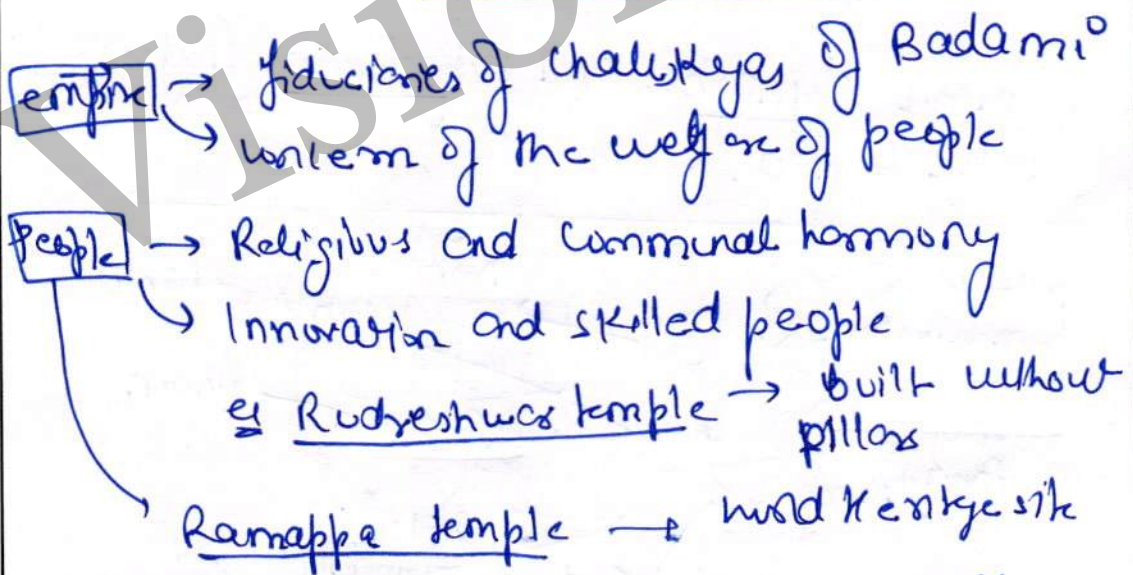 Vision
empire → fiduciaries of Chalukyas of Badami
→ concern of the welfare of people
people → Religious and communal harmony
→ Innovation and skilled people
eg Rudreshwar temple → built without
pillars
Ramappa temple → world Heritage site